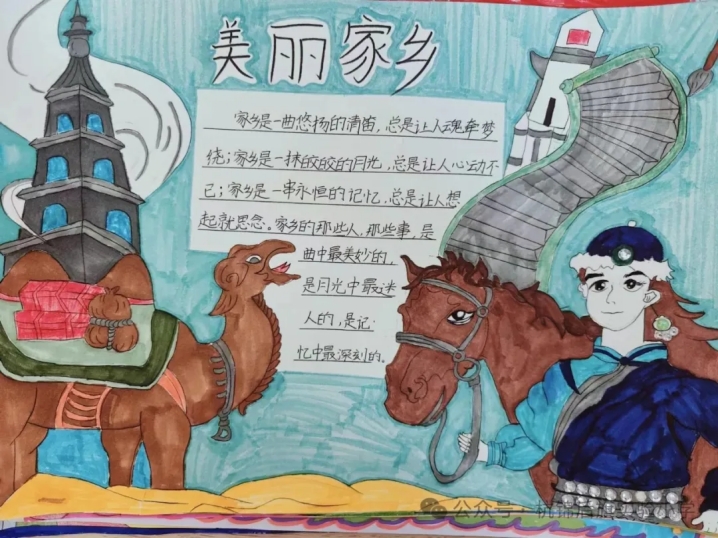 美丽家乡
家乡是一曲悠扬的清笛，总是让人魂牵梦
绕；家乡是一抹皎皎的月光，总是让人心动不
已；家乡是一串永恒的记忆，总是让人想
起就思念。家乡的那些人，那些事，是
曲中最美妙的，
是月光中最迷
人的，是记
忆中最深刻的。
公众号·杭锦后旗实验小学